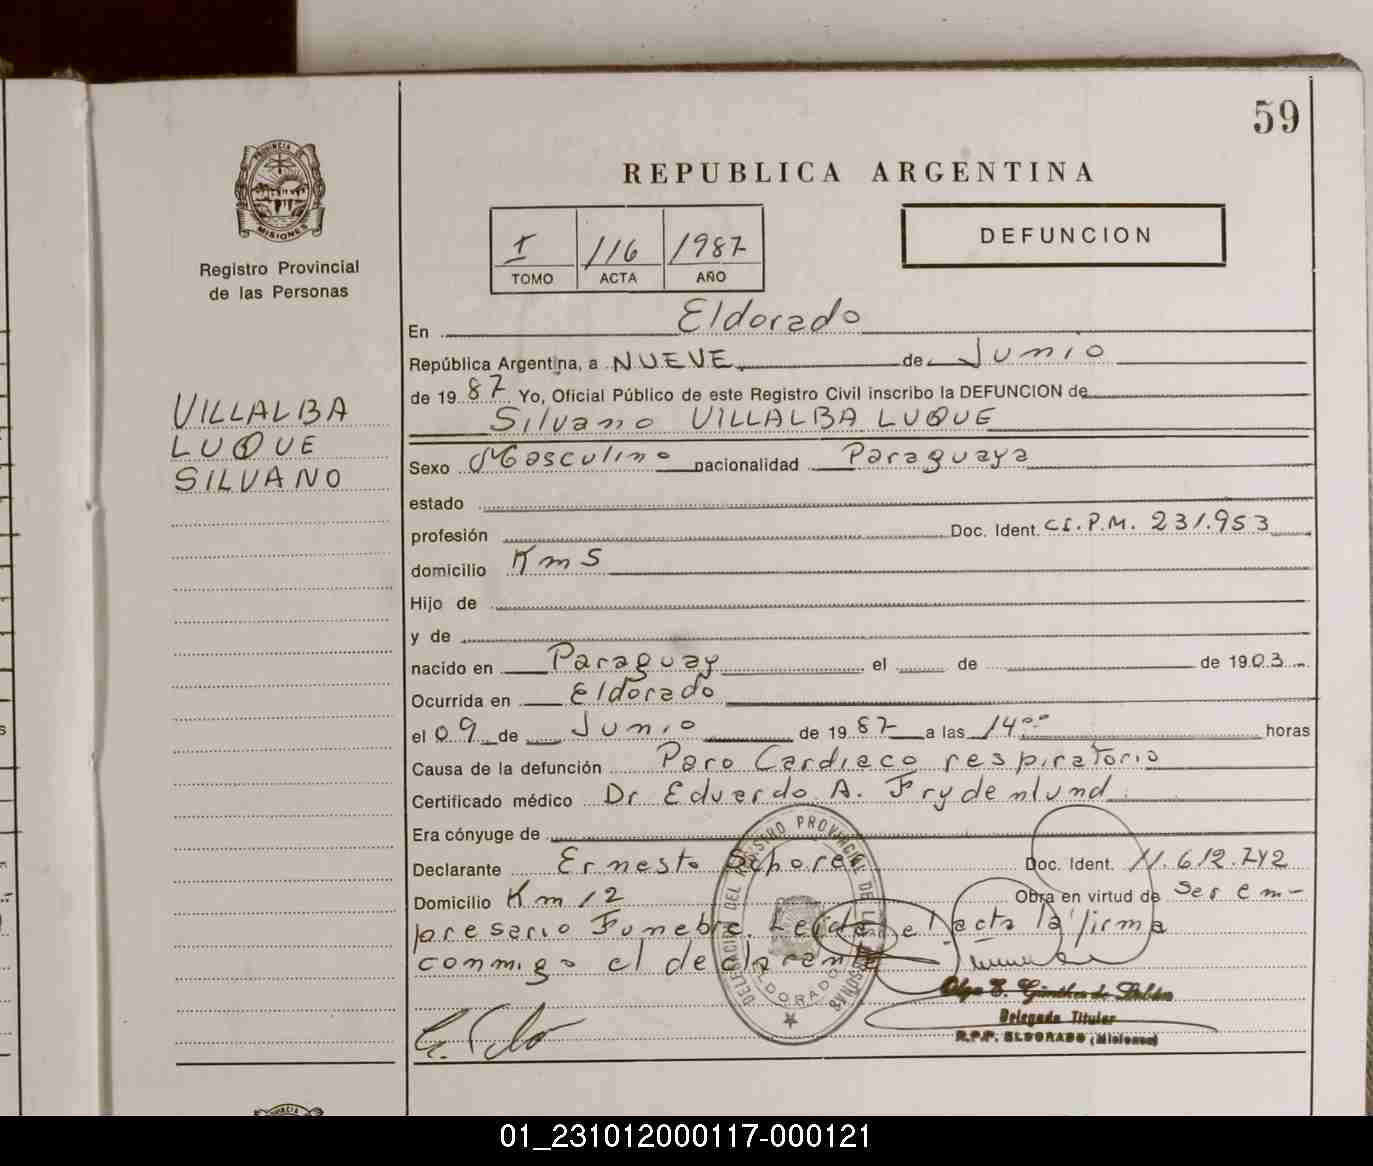 59
REPUBLICA ARGENTINA
PROVINCIA DE MISIONES
Registro Provincial
de las Personas
I 116 1987
TOMO ACTA AÑO
DEFUNCION
En Eldorado
República Argentina, a NUEVE de Junio
de 1987 Yo, Oficial Público de este Registro Civil inscribo la DEFUNCION de
Silvano VILLALBA LUQUE
VILLALBA
LUQUE
SILVANO
Sexo Masculino nacionalidad Paraguaya
estado
profesión Doc. Ident. CI.P.M. 231.953
domicilio Km 5
Hijo de
y de
nacido en Paraguay el de de 1903
Ocurrida en Eldorado
el 09 de Junio de 1987 a las 14ºº horas
Causa de la defunción Paro Cardiaco respiratorio
Certificado médico Dr Eduardo A. Frydenlund
Era cónyuge de
Declarante Ernesto Doc. Ident. 11.612.742
Domicilio Km 12 Obra en virtud de Ser em-
presario Funebre. Leida el acta la firma
conmigo el declarante
DELEGACION DEL REGISTRO PROVINCIAL DE LAS PERSONAS
ELDORADO
Olga E. Günther de
Delegada Titular
R.P.P. ELDORADO (Misiones)
01_231012000117-000121